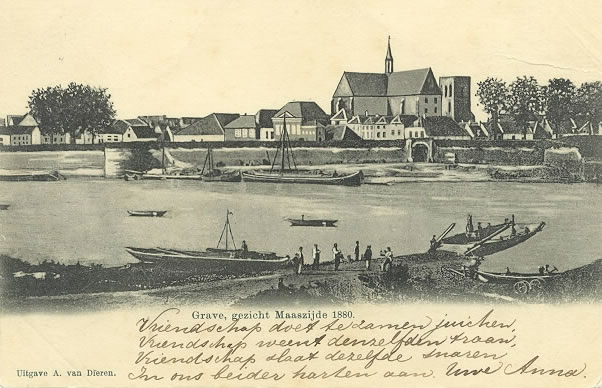 Grave, gezicht Maaszijde 1880.
Vriendschap doet te zamen juichen,
Vriendschap weent denzelfden traan,
Vriendschap slaat dezelfde snaren
In ons beider harten aan. Uwe Anna.
Uitgave A. van Dieren.